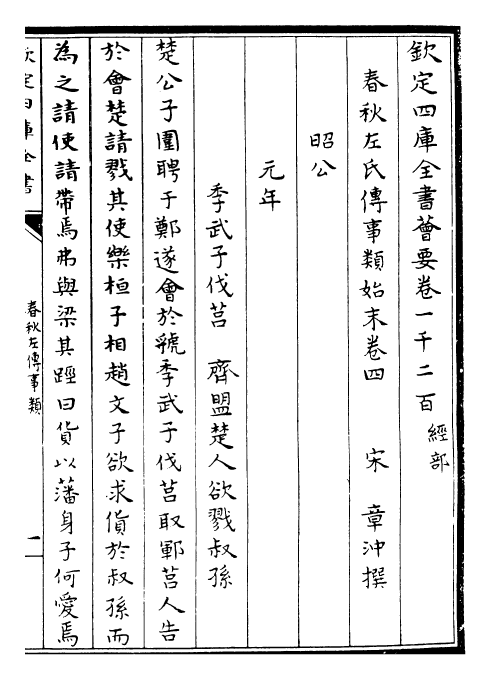 欽定四庫全書薈要卷一千二百 經部
春秋左氏傳事類始末卷四 宋 章沖撰
昭公
元年
季武子伐莒 齊盟楚人欲戮叔孫
楚公子圍聘于鄭遂會於虢季武子伐莒取鄆莒人告
於會楚請戮其使樂桓子相趙文子欲求貨於叔孫而
為之請使請帶焉弗與梁其踁曰貨以藩身子何愛焉
欽定四庫全書
春秋左傳事類